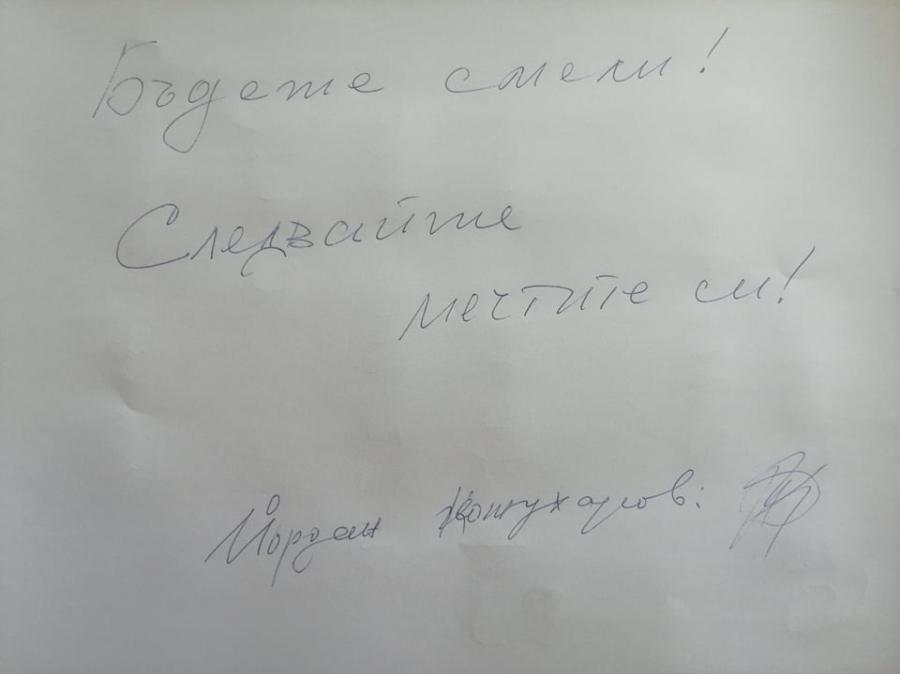 Бъдете смели!
Следвайте
мечтите си!
Йордан Кожухаров: